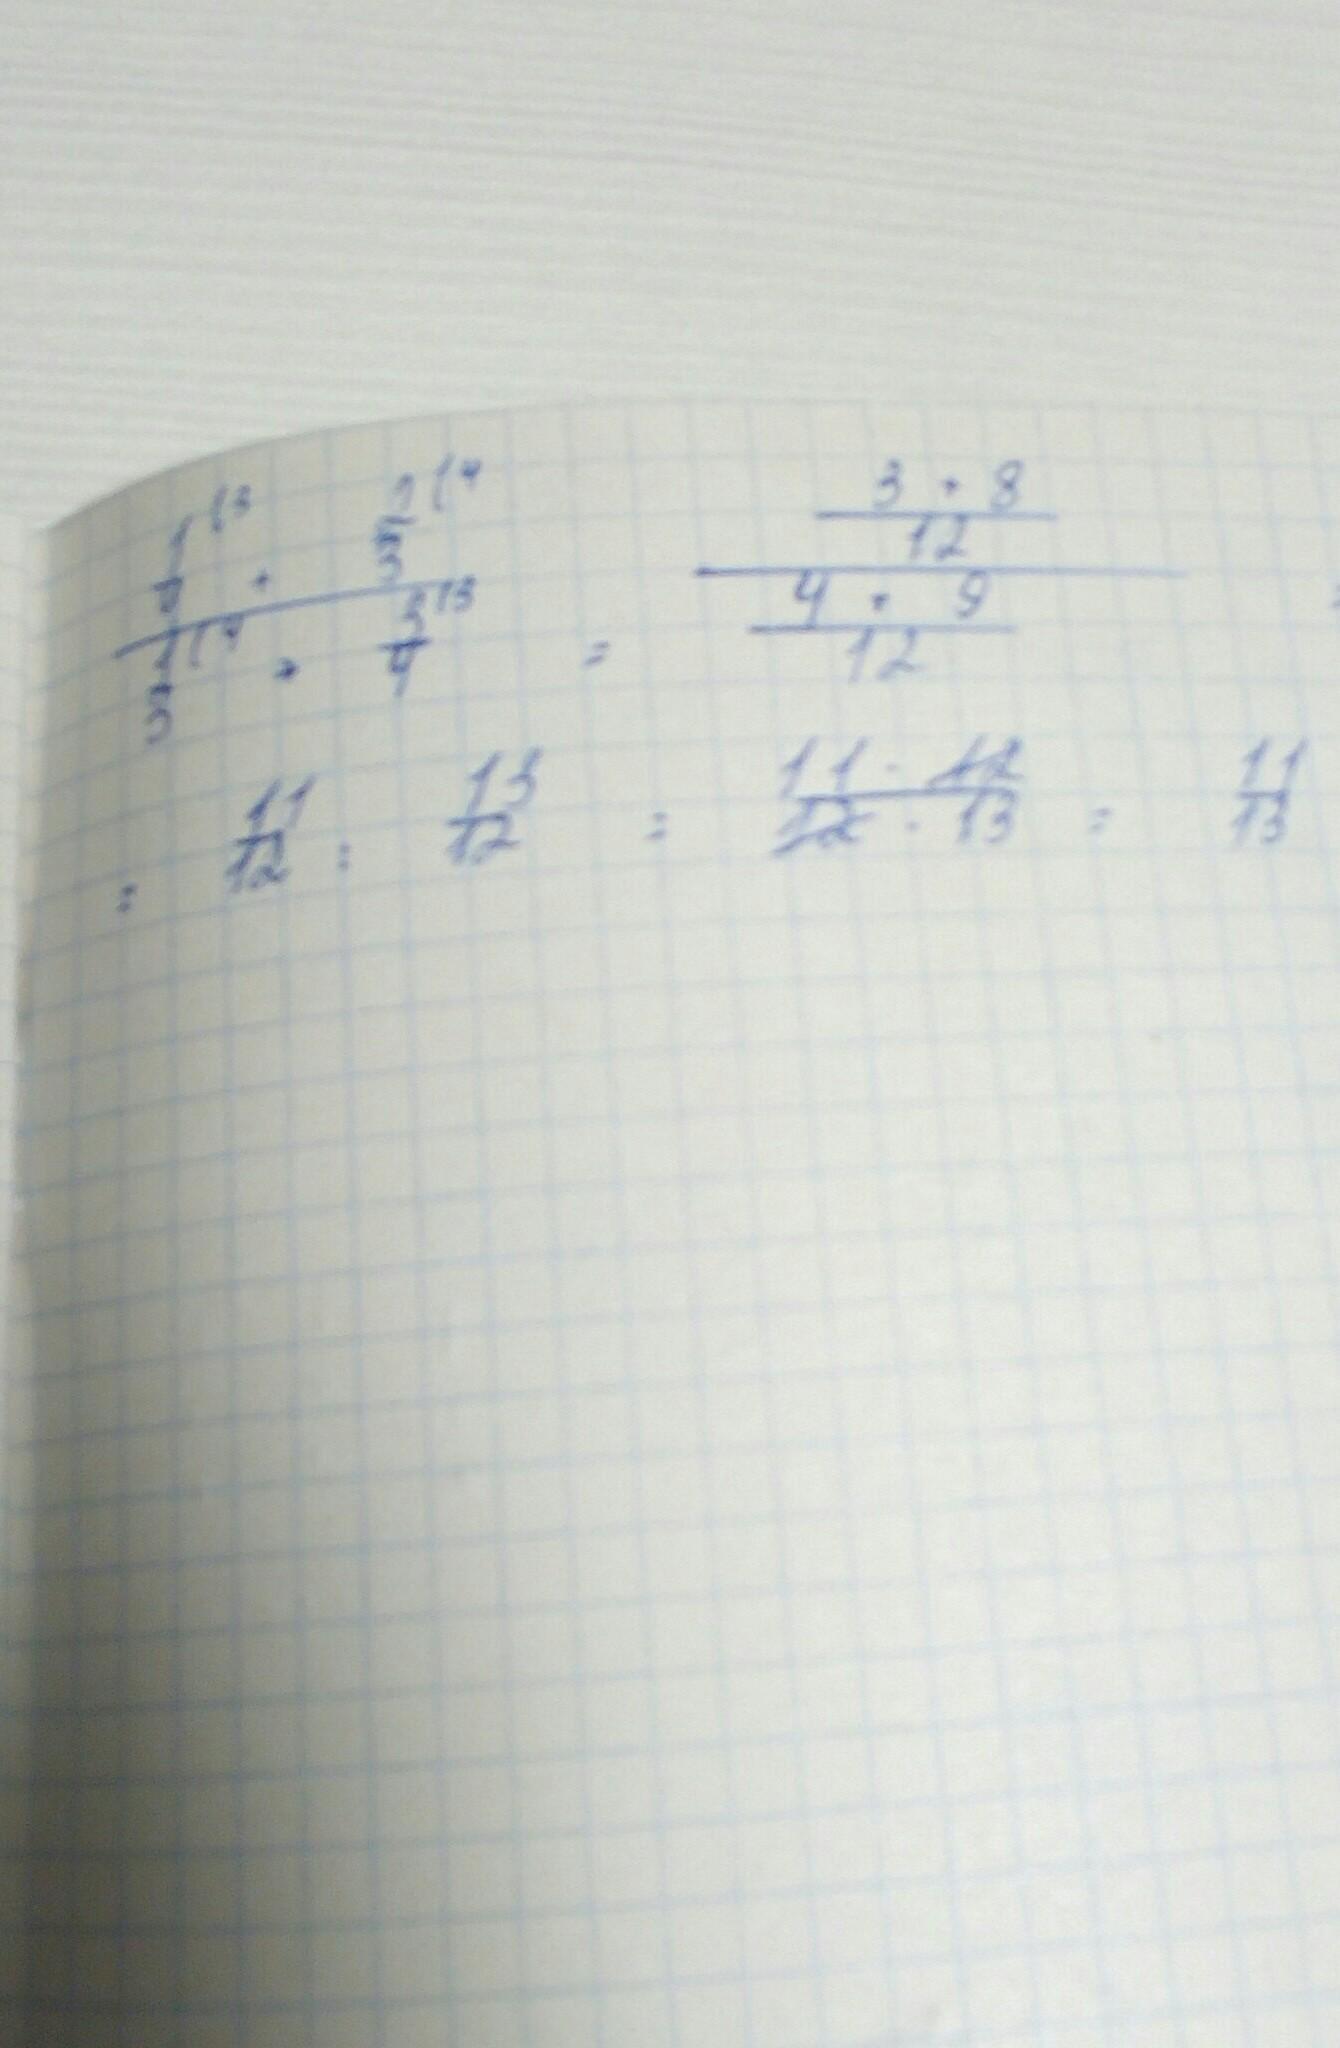 1/4 (3 + 2/3 (4
1/3 (4 + 3/4 (3
= 3 + 8 / 12
4 + 9 / 12 =
= 11/12 : 13/12 = 11 · 12 / 12 · 13 = 11/13